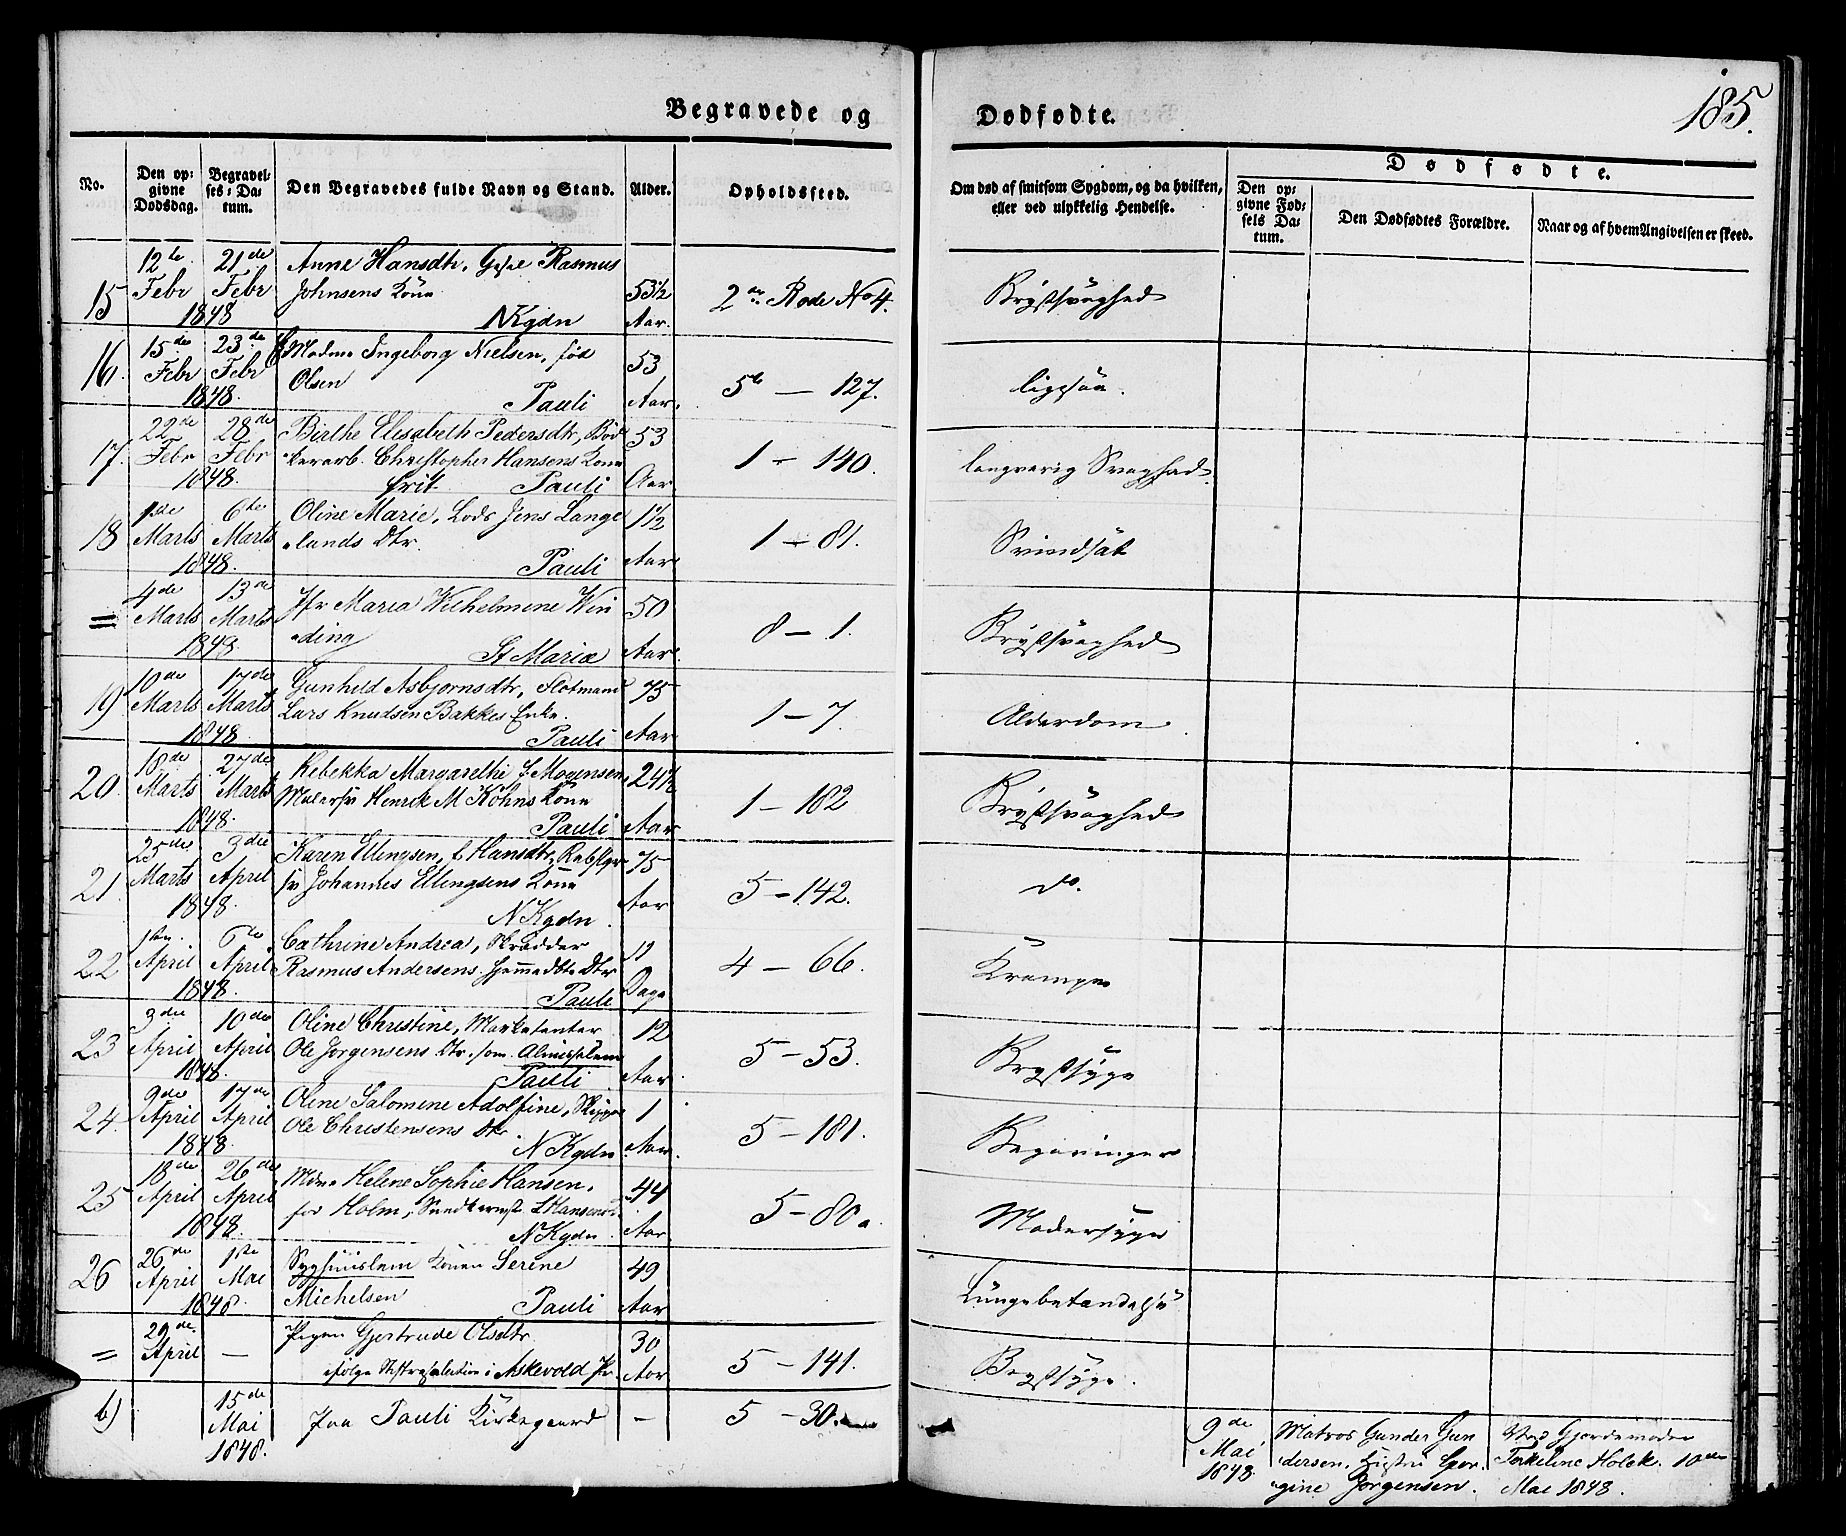 185.
Begravede og
Dødfødte.
No.
Den op-
givne
Dødsdag.
Begravel-
ses-Da-
tum.
Den Begravedes fulde Navn og Stand.
Alder.
Opholdssted.
Om død af smitsom Sygdom, og da hvilken,
eller ved ulykkelig Hendelse.
Dødfødte.
Den op-
givne Fød-
sels Da-
tum.
Den Dødfødtes Forældre.
Naar og af hvem Angivelsen er skeed.
15
12te Febr
21de Febr
1848
Anne Hansdtr, Rasmus
Johnsens Kone
NKgdn
53½ Aar.
2den Rode No 4.
Brystsvaghed
16.
15de Febr
23de Febr
1848.
Madme Ingeborg Nielsen, fød
Olsen
Pauli
53 Aar.
5te — 127.
17.
22de Febr
28de Febr
1848.
Birthe Elisabeth Pedersdtr, Bød
kerarb. Christopher Hansens Kone
frit. Pauli
53 Aar
1 — 140.
langvarig Svaghed.
18
1ste Marts
6te Marts
1848.
Oline Marie, Lods Jens Lange
lands Dtr.
Pauli
1½ Aar
1 — 81.
Svindsot
=
4de Marts
13de Marts
1848
Jfr Maria Wilhelmine Win
ding
St Maria
50 Aar.
8 — 1.
Brystsvaghed
19
10de Marts
17de Marts
1848.
Gunhild Asbjørnsdtr, Flotmand
Lars Knudsen Bakkes Enke.
Pauli
75 Aar
1 — 7.
Alderdom
20.
18de Marts
27de Marts
1848.
Rebekka Margarethe f. Mogensen
Malersv Henrik M Køhns Kone
Pauli
24½ Aar
1 — 182
Brystsvaghed
21.
25de Marts
3die April
1848.
Karen Ellingsen, f Hansdtr, Rebslger
sv Johannes Ellingsens Kone
NKgdn.
75 Aar
5 — 142.
do.
22
1ste April
6te April
1848.
Cathrine Andrea, Skrædder
Rasmus Andersens hjemmedbte Dtr
Pauli
Dage
4 — 66.
Krampe
23
3die April
10de April
1848.
Oline Christine, Marketenter
Ole Jørgensens Dtr. som Almisselem
Pauli
12 Aar.
5 — 53.
Brystsyge
24.
9de April
17de April
1848.
Oline Salomine Adolfine, Skipper
Ole Christensens Dtr.
NKgdn
1 Aar.
5 — 181.
25
18de April
26de April
1848.
Mdme Helene Sophie Hansen,
fød Holm,
NKgdn.
44 Aar
5 — 80a
Modersyge
26
26de April
1ste Mai
1848.
Syghuuslem Konen Serine
Michelsen
Pauli
49 Aar
Lungebetændelse
=
29de April
—
Pigen Gjertrude Olsdtr.
ifølge i Askevold
30 Aar
5 — 141.
Brystsyge.
6)
15de Mai
1848.
Paa Pauli Kirkegaard
—
5 — 30.
9de Mai
1848.
Matros Gunder Gun
dersen, Hustru Geor-
gine Jørgensen.
Ved Gjordemoder
Torkeline Holck. 10de
Mai 1848.